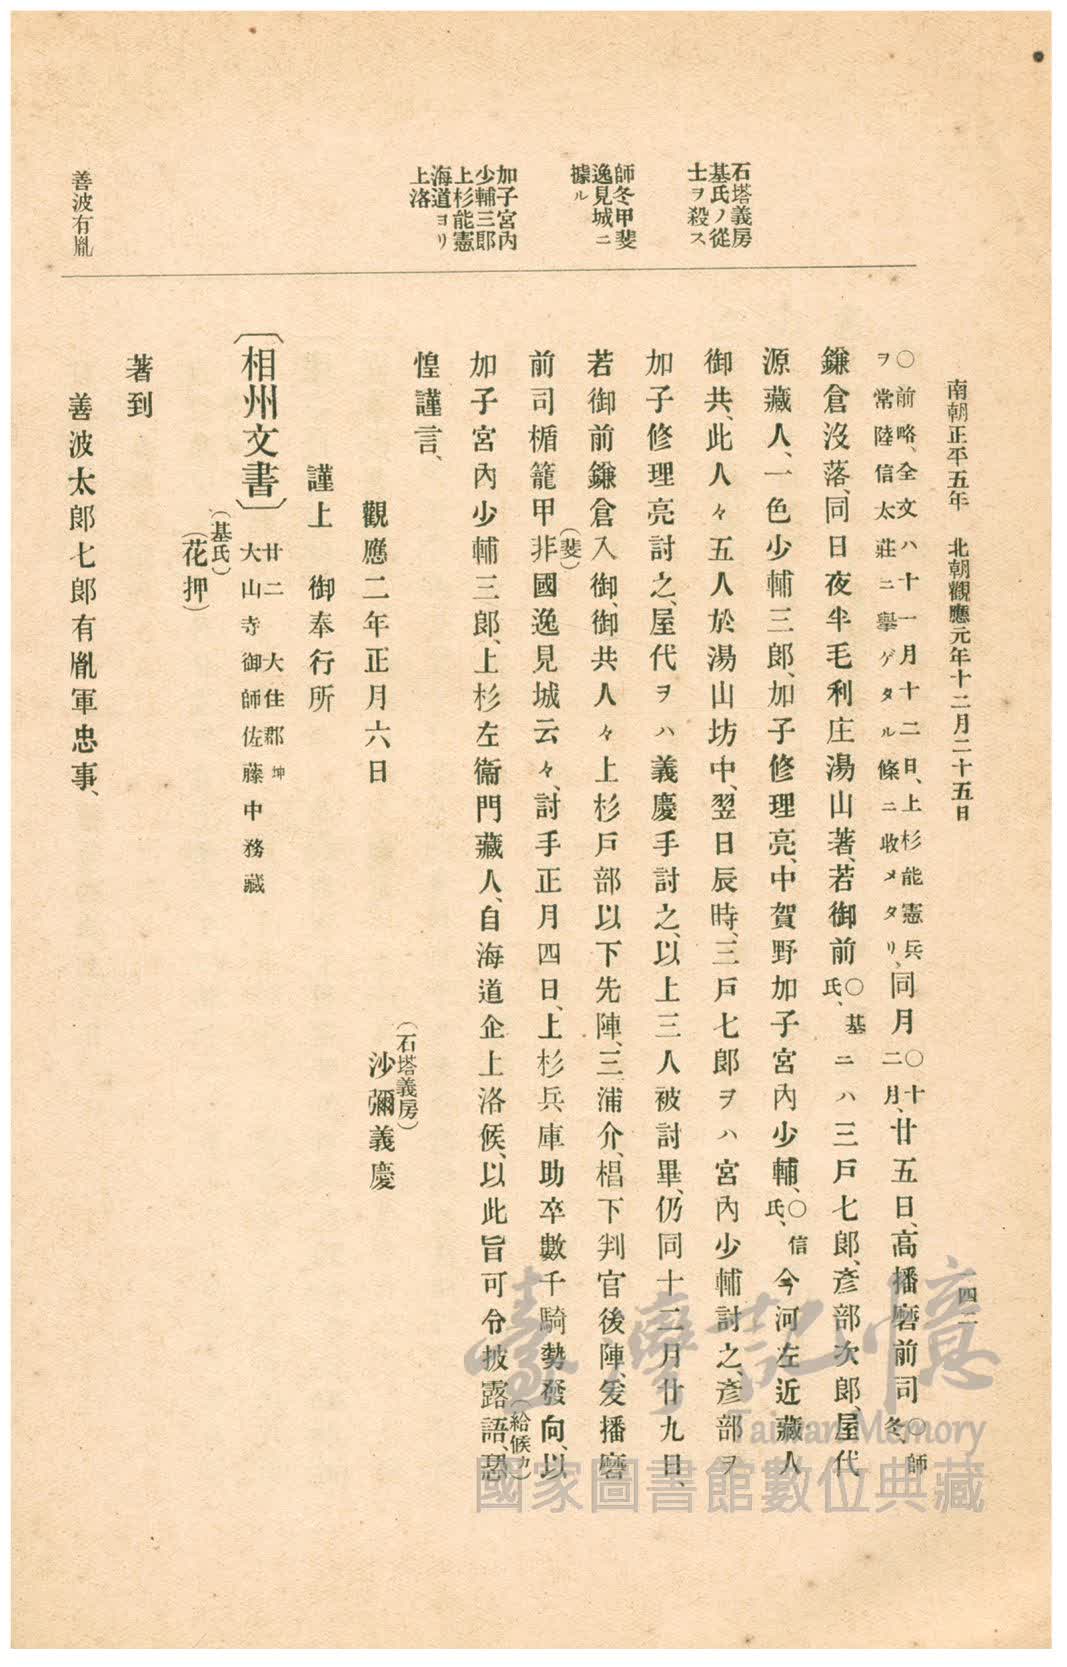 南朝正平五年　北朝觀應元年十二月二十五日
四二
○前略、全文ハ十一月十二日、上杉能憲兵
ヲ常陸信太莊ニ擧ゲタル條ニ收メタリ、同月○十二月、廿五日、高播磨前司○師冬、
鎌倉沒落、同日夜半毛利庄湯山著、若御前○基氏、ニハ三戸七郎、彥部次郎、屋代
源藏人、一色少輔三郎、加子修理亮、中賀野加子宮內少輔、○信氏、今河左近藏人
御共、此人々五人於湯山坊中、翌日辰時、三戸七郎ヲハ宮內少輔討之、彥部ヲ
加子修理亮討之、屋代ヲハ義慶手討之、以上三人被討畢、仍同十二月廿九日、
若御前鎌倉入御、御共人々上杉戸部以下先陣、三浦介、椙下判官後陣、爰播磨
前司楯籠甲非(斐)國逸見城云々、討手正月四日、上杉兵庫助卒數千騎勢發向、以
加子宮內少輔三郎、上杉左衞門藏人、自海道企上洛候、以此旨可令披露語(給候カ)、恐
惶謹言、
觀應二年正月六日
(石塔義房)
沙彌義慶
謹上　御奉行所
〔相州文書〕廿二　大住郡坤
大山寺御師佐藤中務藏
(基氏)
(花押)
著到
善波太郎七郎有胤軍忠事、
石塔義房
基氏ノ從
士ヲ殺ス
師冬甲斐
逸見城ニ
據ル
加子宮內
少輔三郎
上杉能憲
海道ヨリ
上洛
善波有胤
臺灣記憶
Taiwan Memory
國家圖書館數位典藏